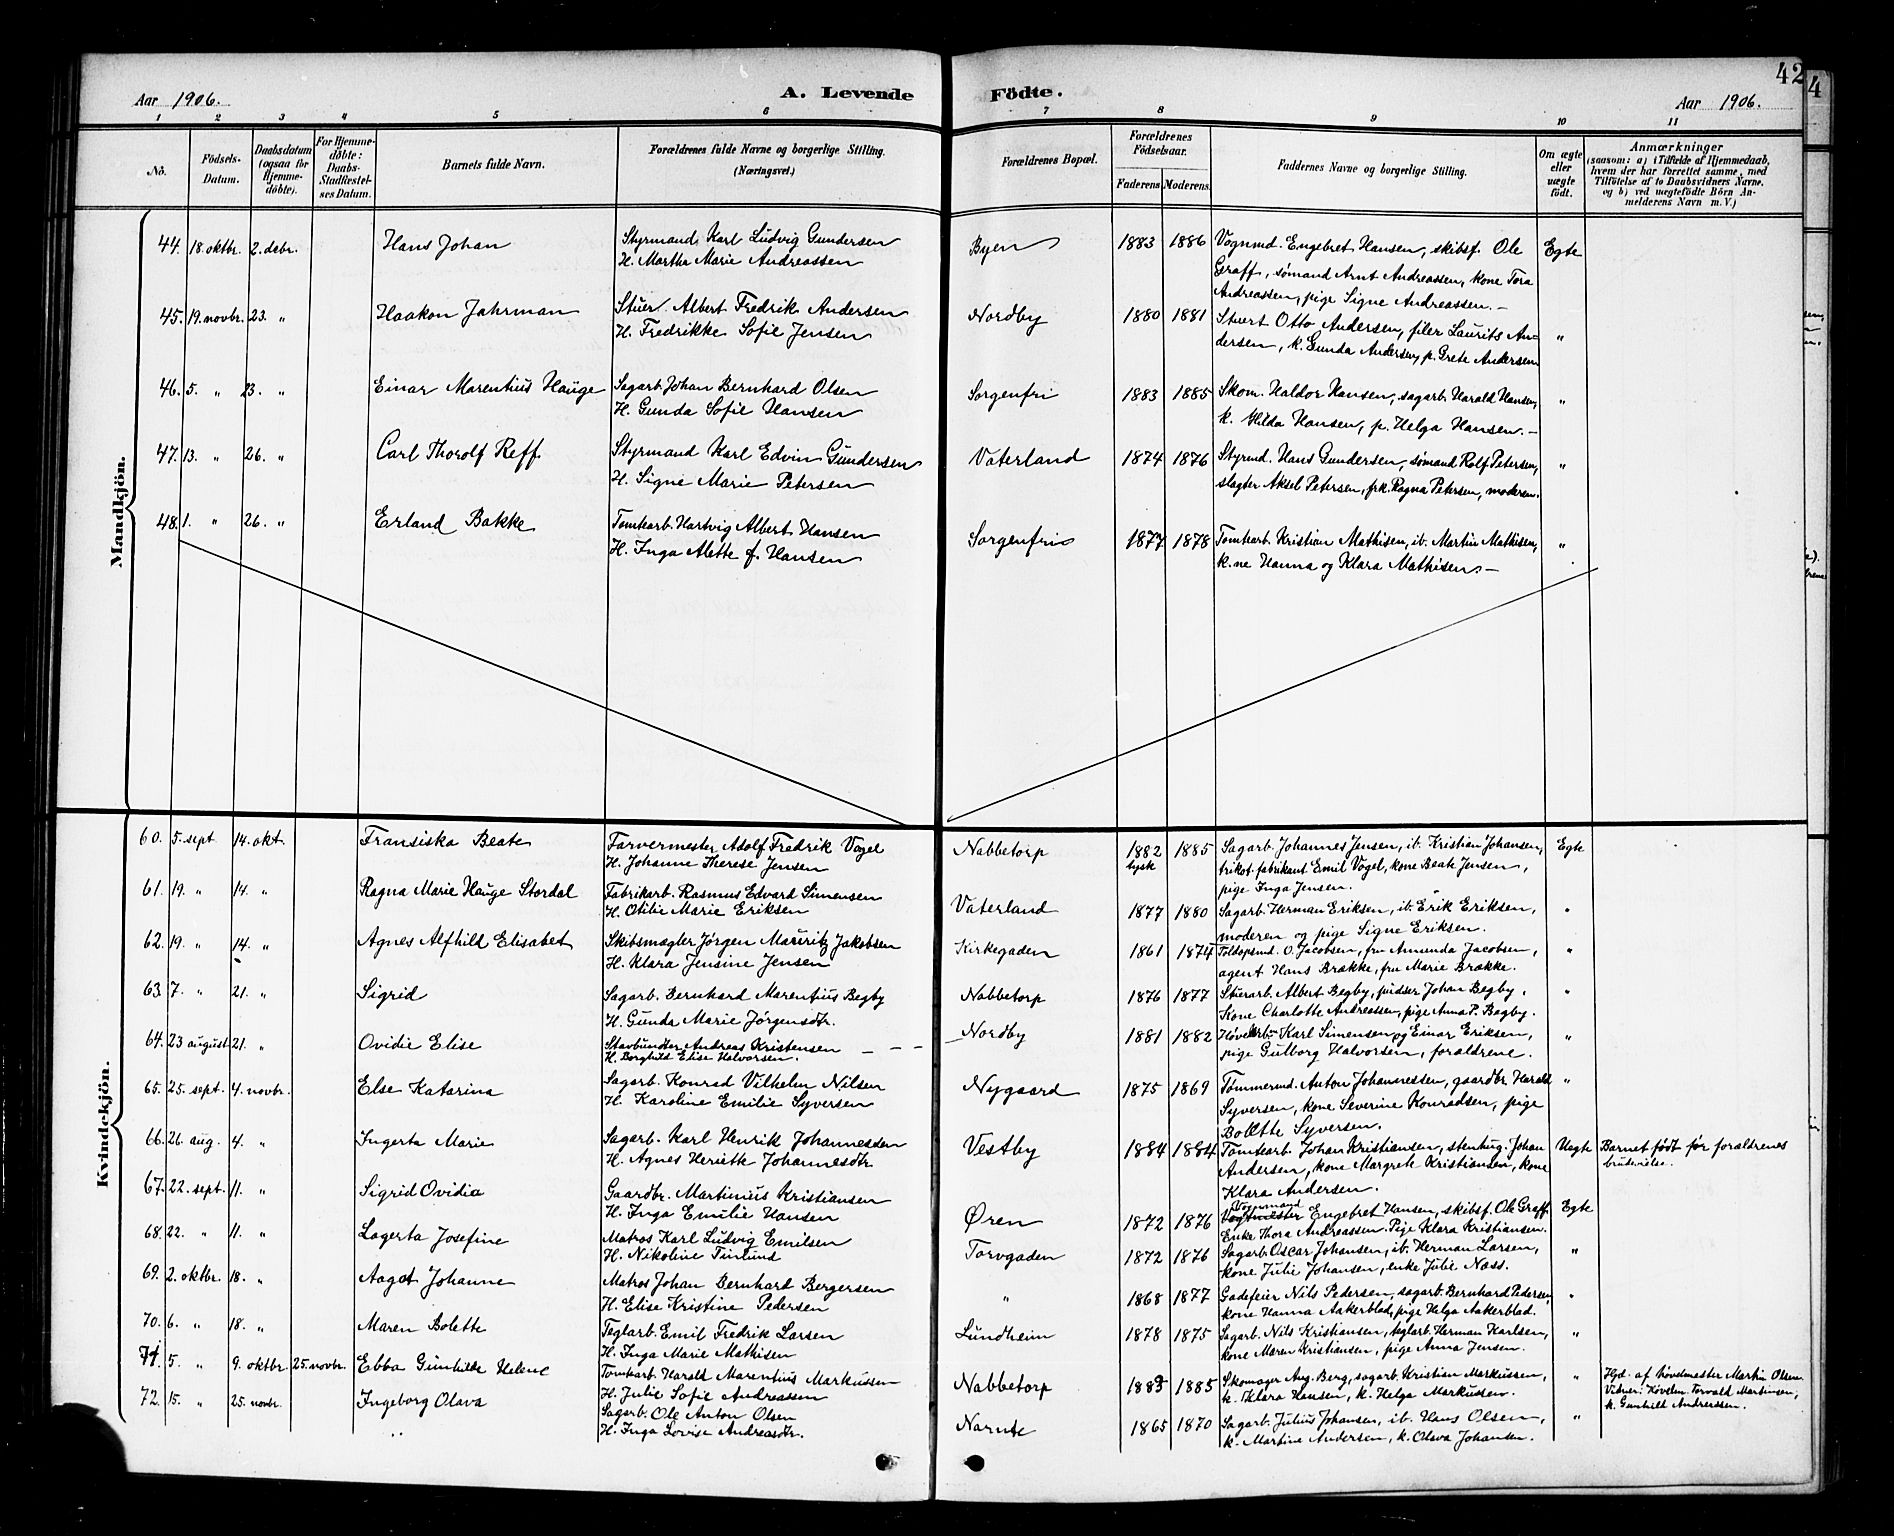 42
4
Aar 1906.
A. Levende
Födte.
Aar 1906.
1 2 3 4 5 6 7 8 9 10 11
No.
Födsels-Datum.
Daabsdatum (ogsaa for Hjemme-döbte).
For Hjemme-döbte: Daabs-Stadfæstel-ses Datum.
Barnets fulde Navn.
Forældrenes fulde Navne og borgerlige Stilling.
(Næringsvei.)
Forældrenes Bopæl.
Forældrenes Födselsaar.
Faderens. Moderens.
Faddernes Navne og borgerlige Stilling.
Om ægte eller uægte födt.
Anmærkninger
(saasom: a) i Tilfælde af Hjemmedaab, hvem der har forrettet samme, med Tilföielse af to Daabsvidners Navne, og b) ved uægtefödte Börn An-melderens Navn m. V.)
Mandkjön.
44. 18. oktbr. 2. debr. Hans Johan Styrmand Karl Ludvig Gundersen Byen 1883 1886 Vognmd. Engebret Hansen, skibsf. Ole Egte
H. Martha Marie Andreassen Graff, sømand Arnt Andreassen, kone Tora
Andreassen, pige Signe Andreassen.-
45. 19. novbr. 23. " Haakon Jahrman Stuer. Albert Fredrik Andersen Nordby 1880 1881 Stuert Otto Andersen, filer Laurits An- "
H. Fredrikke Sofie Jensen dersen, k. Gunda Andersen, p. Grete Andersen
46. 5. " 23. " Einar Marentius Hauge Sagarb. Johan Bernhard Olsen Sorgenfri 1883 1885 Skom. Haldor Hansen, sagarb. Harald Hansen, "
H. Gunda Sofie Hansen k. Hilda Hansen, p. Helga Hansen.-
47. 13. " 26. " Carl Thorolf Reff. Styrmand Karl Edvin Gundersen Vaterland 1874 1876 Styrmd. Hans Gundersen, sømand Rolf Petersen, "
H. Signe Marie Petersen slagter Aksel Petersen, frk. Ragna Petersen, moderen.
48. 1. " 26. " Erland Bakke Tomtearb. Hartvig Albert Hansen Sorgenfri 1877 1878 Tomtearb. Kristian Mathisen, ib. Martin Mathisen, "
H. Inga Alette f. Hansen k.ne Hanna og Klara Mathisen.-
Kvindekjön.
60. 5. sept 14. okt. Fransiska Beate Farvermester Adolf Fredrik Vogel Nabbetorp 1882 tysk 1885 Sagarb. Johannes Jensen, ib. Kristian Johansen, Egte
H. Johanne Therese Jensen trikot. fabrikant Emil Vogel, kone Beate Jensen,
pige Inga Jensen.
61. 19. " 14. " Ragna Marie Hauge Stordal Fabrikarb. Rasmus Edvard Simensen Vaterland 1877 1880 Sagarb. Herman Eriksen, ib. Erik Eriksen, "
H. Otilie Marie Eriksen moderen og pige Signe Eriksen.
62. 19. " 14. " Agnes Alfhild Elisabet Skibsmægler Jørgen Mauritz Jakobsen Kirkegaden 1861 1874 Toldopsmd. O. Jacobsen, fru Amunda Jacobsen, "
H. Klara Jensine Jensen agent Hans Brække, fru Marie Brække.
63. 7. " 21. " Sigrid Sagarb. Bernhard Marentius Begby Nabbetorp 1876 1877 Stuerarb. Albert Begby, pudser Johan Begby, "
H. Gunda Marie Jørgensdtr. Kone Charlotte Andreassen, pige Anna P. Begby.
64. 23 august 21. " Ovidie Elise Stavbundter Andreas Kristensen - - - Nordby 1881 1882 Høvelarb. Karl Simensen og Einar Eriksen, "
H. Borghild Elise Halvorsen. pige Gulborg Halvorsen, forældrene.
65. 25. sept. 4. novbr. Else Katarina Sagarb. Konrad Vilhelm Nilsen Nygaard 1875 1869 Tømmermd. Anton Johannessen, gaardbr. Harald "
H. Karoline Emilie Syversen Syversen, kone Severine Konradsen, pige
Bolette Syversen.
66. 26. aug. 4. " Ingerta Marie Sagarb. Karl Henrik Johannesden Vestby 1884 1884 Tomtearb. Johan Kristiansen, stenhug. Johan Uegte Barnet født før forældrenes
H. Agnes Heriette Johannesdtr Andersen, kone Margrete Kristiansen, kone brudevielse.
Klara Andersen.
67. 22. sept. 11. " Sigrid Ovidia Gaardbr. Martinius Kristiansen Øren 1872 1876 Vognmand Engebret Hansen, skibsf. Ole Graff. Egte
H. Inga Emilie Hansen Enke Thora Andreassen. Pige Klara Kristiansen.
68. 22. " 11. " Lagerta Josefine Matros Karl Ludvig Emilsen Torvgaden 1872 1876 Sagarb. Oscar Johansen, ib. Herman Larsen, "
H. Nikoline Tinlund kone Julie Johansen, enke Julie Næss.
69. 2. oktbr. 18. " Aagot Johanne Matros Johan Bernhard Bergersen " 1868 1877 Gadefeier Nils Pedersen, sagarb. Bernhard Pedersen, "
H. Elise Kristine Pedersen kone Hanna Aakerblad, pige Helga Aakerblad.
70. 6. " 18. " Maren Bolette Teglarb. Emil Fredrik Larsen Lundheim 1878 1875 Sagarb. Nils Kristiansen, teglarb. Herman Karlsen, "
H. Inga Marie Mathisen kone Maren Kristiansen, pige Anna Jensen.
71. 5 " 9. oktbr. 25. novbr. Ebba Gunhilde Helene Tomtearb. Harald Marentius Markussen Nabbetorp 1883 1885 Skomager Aug. Berg, sagarb. Kristian Markussen, " Hjd. af høvelmester Martin Olsen
H. Julie Sofie Andreassen k. Klara Hansen, k. Helga Markussen. Vidner: Høvelm. Torvald Martinsen,
k. Gunhild Andreassen.
72. 15. " 25. novbr. Ingeborg Olava Sagarb. Ole Anton Olsen Narnte 1865 1870 Sagarb. Julius Johansen, ib. Hans Olsen, "
H. Inga Lovise Andreasdtr. k. Martine Andersen, k. Olava Johansen.